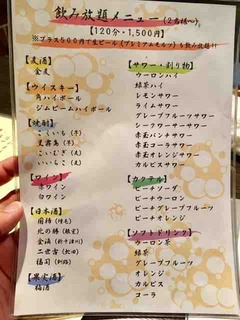 飲み放題メニュー(2名様〜)
【120分・1,500円】
※プラス500円で生ビール(プレミアムモルツ)も飲み放題!!
【麦酒】
金麦
【ウイスキー】
角ハイボール
ジムビームハイボール
【焼酎】
こくいち(芋)
黒霧島(芋)
こいむぎ(麦)
いいちこ(麦)
【ワイン】
赤ワイン
白ワイン
【日本酒】
国稀(増毛)
北の勝(根室)
金滴(新十津川)
二世古(倶知安)
福司(釧路)
【果実酒】
梅酒
【サワー・割り物】
ウーロンハイ
緑茶ハイ
レモンサワー
ライムサワー
グレープフルーツサワー
シークワーサーサワー
赤玉パンチサワー
赤玉コーラサワー
赤玉オレンジサワー
カルピスサワー
【カクテル】
ピーチソーダ
ピーチウーロン
ピーチグレープフルーツ
ピーチオレンジ
【ソフトドリンク】
ウーロン茶
緑茶
グレープフルーツ
オレンジ
カルピス
コーラ